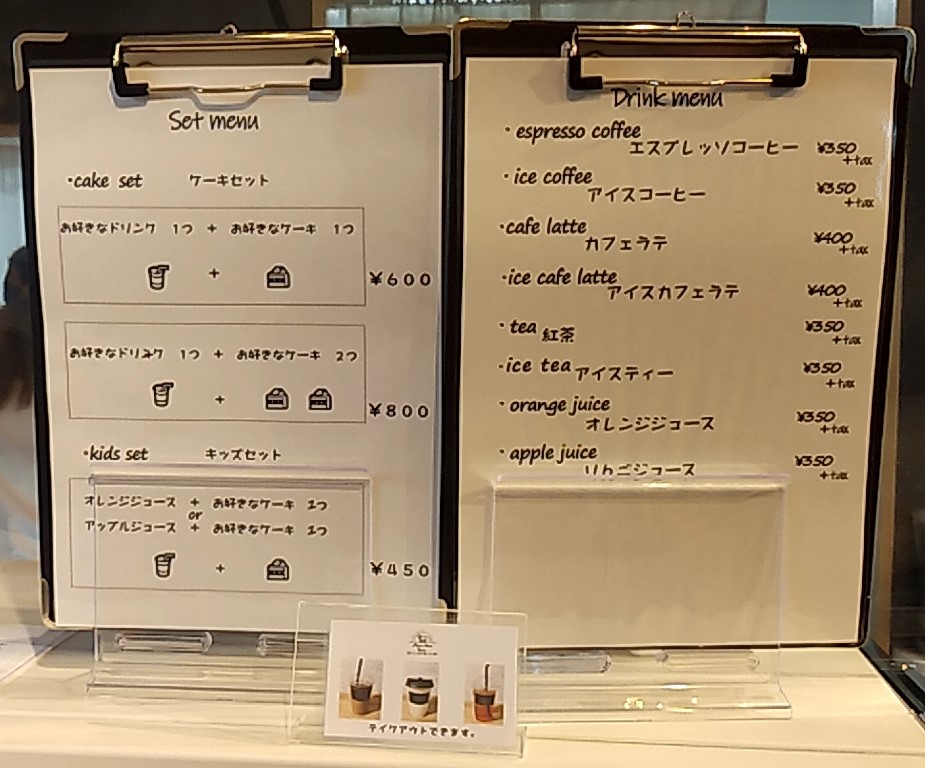 Set menu
・cake set ケーキセット
お好きなドリンク 1つ + お好きなケーキ 1つ
+
¥600
お好きなドリンク 1つ + お好きなケーキ 2つ
+
¥800
・kids set キッズセット
オレンジジュース + お好きなケーキ 1つ
or
アップルジュース + お好きなケーキ 1つ
+
¥450
Drink menu
・espresso coffee
エスプレッソコーヒー ¥350
+tax
・ice coffee
アイスコーヒー ¥350
+tax
・cafe latte
カフェラテ ¥400
+tax
・ice cafe latte
アイスカフェラテ ¥400
+tax
・tea 紅茶 ¥350
+tax
・ice tea アイスティー ¥350
+tax
・orange juice
オレンジジュース ¥350
+tax
・apple juice
りんごジュース ¥350
+tax
テイクアウトできます。